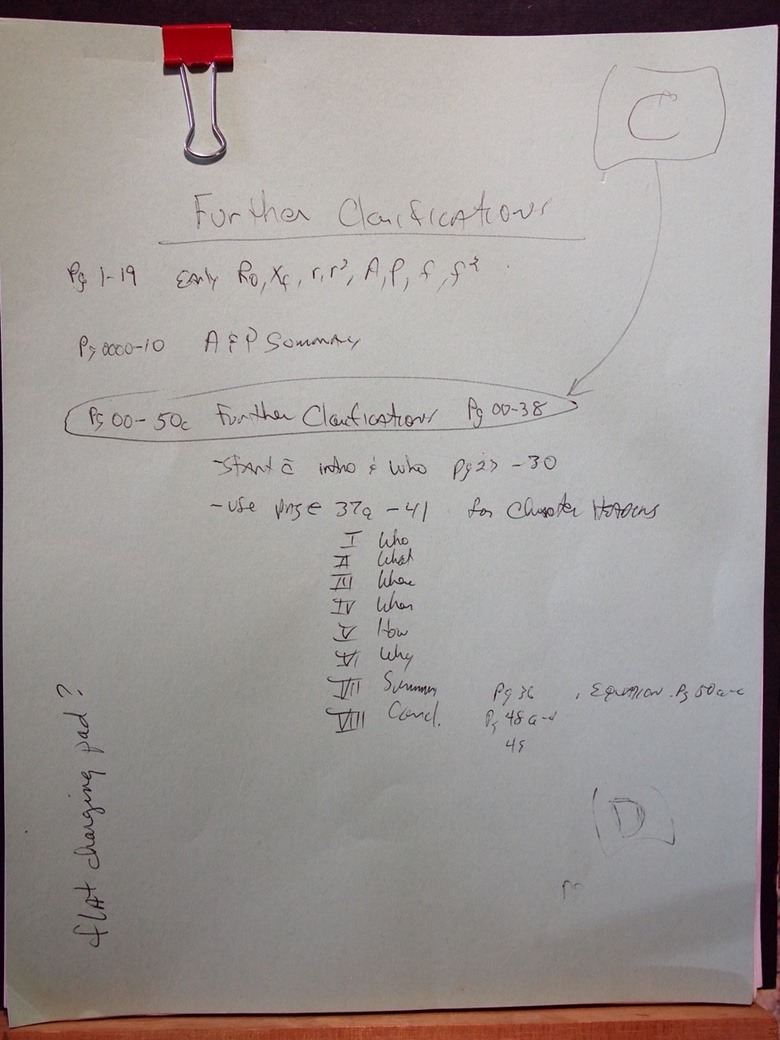 C
Further Clarifications
Pg 1-19 Early Ro, Xf, r, r³, A, P, f, f²
Pg 0000-10 A & P Summary
Pg 00-50c Further Clarifications Pg 00-38
-Start c̄ intro & Who Pg 27-30
-use page 37a -41 for Chapter Headers
I Who
II What
III Where
IV When
V How
VI Why
VII Summary Pg 36 , Equation Pg 50a-c
VIII Concl. Pg 48a-d
49
D
flat charging pad?